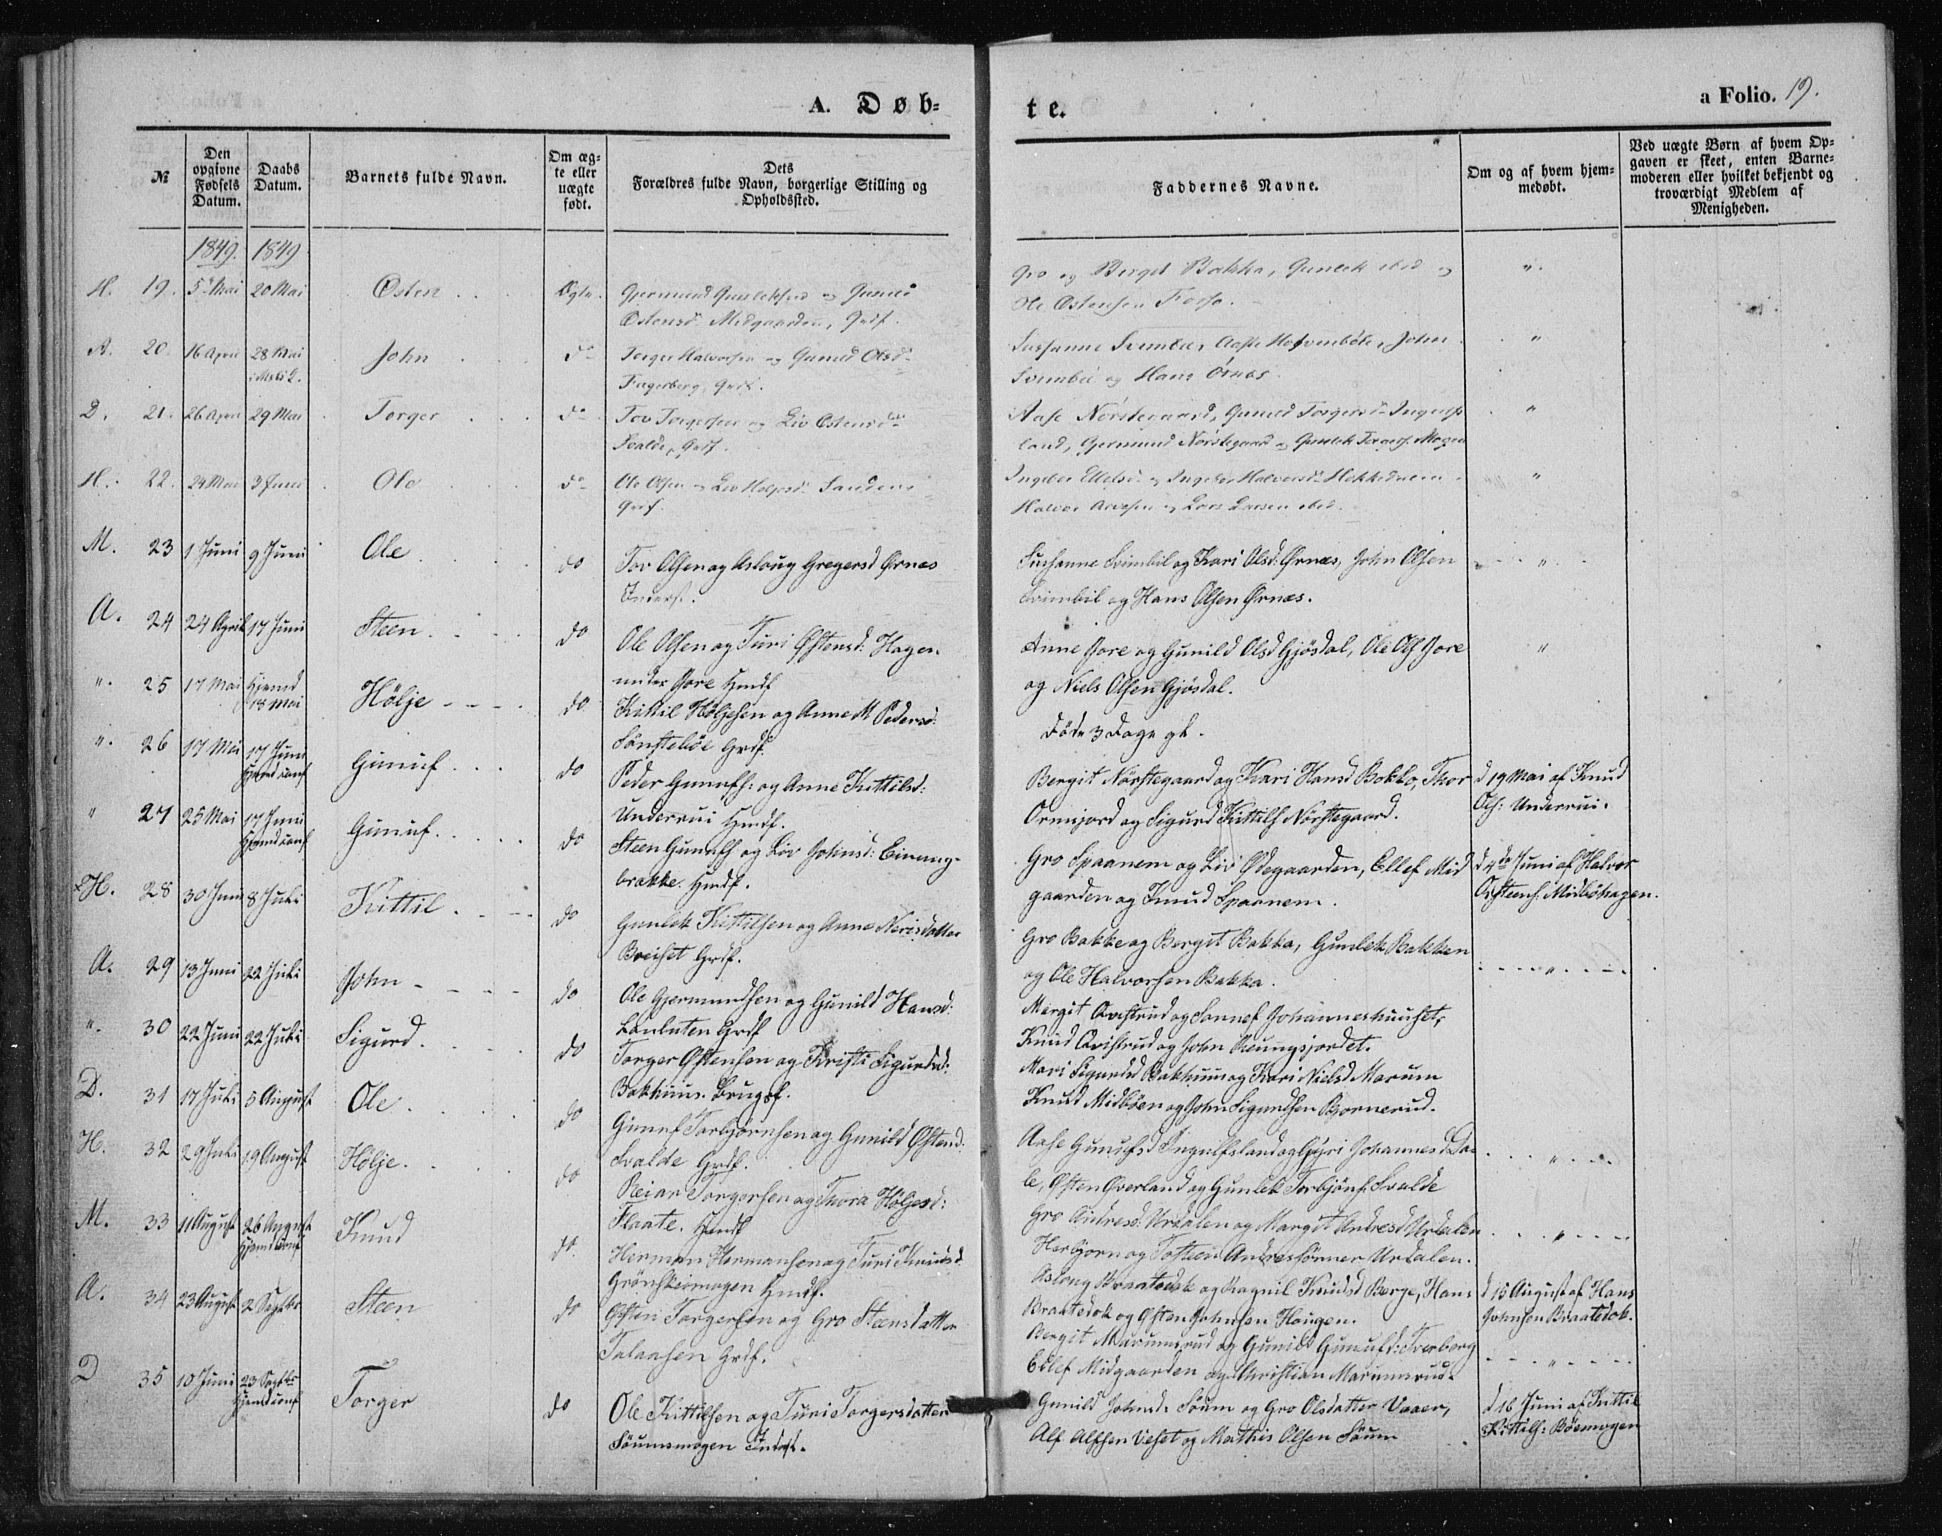 A. Døb-
te.
a Folio. 19.
№
Den opgivne Fødsels Datum.
Daabs Datum.
Barnets fulde Navn.
Om ægte eller uægte født.
Dets
Forældres fulde Navn, borgerlige Stilling og
Opholdssted.
Faddernes Navne.
Om og af hvem hjemmedøbt.
Ved uægte Børn af hvem Op-
gaven er skeet, enten Barne-
moderen eller hvilket bekjendt og
troværdigt Medlem af
Menigheden.
1849. 1849
H. 19. 5 Mai 20 Mai Østen Ægte. Gjermund Gunleksen og Gunild
Østensd Midgaarden, Grdf.
Gro og Berget Bakka, Gunlek ibid og "
Ole Østensen
A. 20. 16 April 28 Mai John do Torger Halvorsen og Gunild Olsd
Fagerberg, Grdf.
Susanne Svimbil, Aaste, John "
Svimbil og Hans Ørnæs
D. 21. 26 April 29 Mai Torger do Tov Torgersen og Liv Østensd
Svalde, Grdf.
Aase Nørstegaard, Gunild Torgersd Ingulfs-
land, Gjermund Nørstegaard og Gunlek "
H. 22. 24 Mai 3 Juni Ole do Ole Olsen og Liv Sanden
Grdf.
Ingeber og Ingeber Halvorsd "
Halvor og Lars Larsen ibid.
M. 23 1 Juni 9 Juni Ole do Tov Olsen og Asloug Gregersd Ørnæs
Inderst.
Susanne Svimbil og Kari Olsd: Ørnæs, John Olsen "
Svimbil og Hans Olsen Ørnæs.
A. 24 24 April 17 Juni Steen do Ole Olsen og Turi Østensd: Hagen
under Gore Hmdf
Anne Gore og Gunild Olsd Gjøsdal, Ole Ols Gore "
og Niels Olsen Gjøsdal.
". 25 17 Mai Hjemd 18 Mai Hølje do Kittil Høljesen og Anne M Pedersd:
Sønsteløe Grdf.
Døde 3 Dage gl.
". 26 17 Mai 17 Juni Hjemd conf Gunuf do Peder Gunufs: og Anne Kittilsd:
Underrui Hmdf.
Bergit Nørstegaard og Kari Hansd Bokko, Thor
Ormsjord og Sigurd Kittils Nørstegaard.
d 19 Mai af Knud
Ols: Underrui.
" 27 25 Mai 17 Juni Hjemd conf Gunuf do Steen Gunufs og Liv Johnsd: Einung-
brække. Hmdf.
Gro Spaanem og Liv Ødegaarden, Ellef Mid
gaarden og Knud Spaanem.
d 4de Juni af Halvor
Østens: Midbøhagen.
H. 28 30 Juni 8 Juli Kittil do Gunlek Kittilsen og Anne Nirisdatter
Breiset Grdf.
Gro Bakke og Bergit Bakka, Gunlek Bakken
og Ole Halvorsen Bakka.
A. 29 13 Juni 22 Juli John do Ole Gjermundsen og Gunild Hansd:
Grdf
Margit Qvistrud og Sønnef Johanneshuuset,
Knud Qvistrud og John
". 30 22 Juni 22 Juli Sigurd do Torger Østensen og Kristi Sigurdsd:
Bakhuus. Brugsf.
Mari Sigurdsd Bakhuus og Kari Nielsd Marum
Knud Midbøen og John Sigurdsen Bjornerud.
D. 31 17 Juli 5 August Ole do Gunuf Torbjørnsen og Gunild Østensd:
Svalde Grdf.
Aase Gunufsd Ingulfsland og Gjyri Johannesd Da-
le, Østen Øverland og Gunlek Torbjøns. Svalde
H. 32 29 Juli 19 August Hølje do Reiar Torgersen og Thora Høljesd:
Flaate. Hmdf
Gro Andresd: Urdalen og Margit Andresd Urdalen
Herbjørn og Andressønner Urdalen.
M. 33 11 August 26 August Hjemd conf Knud do Herman Hermansen og Turi Knudsd
Grønskeimogen Hmdf.
Aslong Braatedok og Ragnil Knudsd Berge, Hans
Braatedok og Østen Johnsen Haugen.
d 15 August af Hans
Johnsen Braatedok.
A. 34 23 August 2 Septbr Steen do Østen Torgersen og Gro Steensdatter
Talaasen Grdf.
Bergit Marumsrud og Gunild Gunufsd: Tverberg
Ellef Midgaarden og Christian Marumsrud.
D 35 10 Juni 23 Septbr Hjemd conf Torger do Ole Kittilsen og Turi Torgersdatter
Søumsmogen Inderst.
Gunild Johnsd: Søum og Gro Olsdatter Vaaer,
Alf Alfsen Veset og Mathis Olsen Søum
d 16 Juni af Kittil
Kittils: Bøemogen